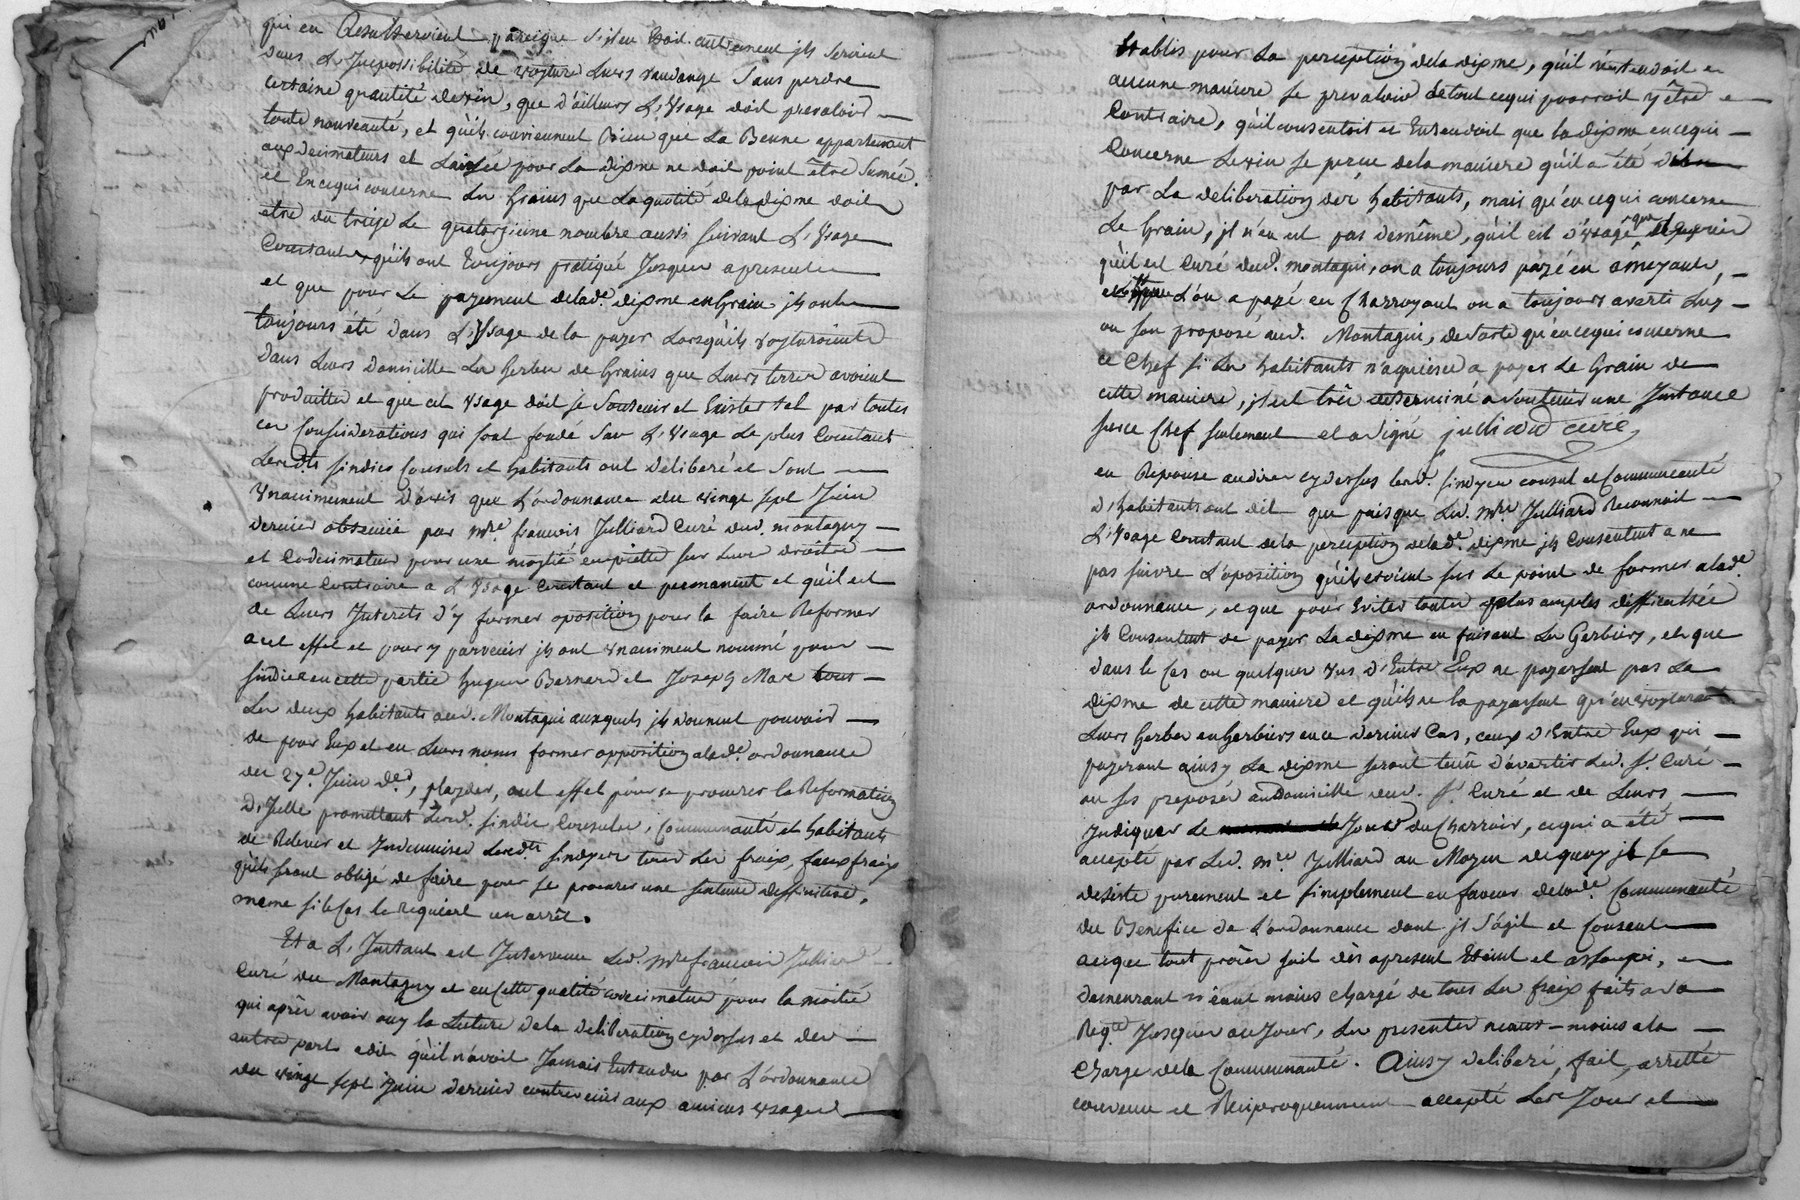 qui en Resulteroient parceque s'il en Etoit autrement jls seroient
dans L'Jmpossibilité de voyturer Leurs vandange sans perdre
certaine quantité de vin, que d'ailleurs L'Vsage doit prevaloir
toute nouveauté, et qu'ils conviennent Bien que La Benne appartenant
aux decimateurs et Laissée pour La dixme ne doit point être
et En ce qui concerne Les Grains que La quotité de la dixme doit
etre du treize Le quatorzieme nombre aussi suivant L'Vsage
Constant qu'ils ont Toujours pratiqué Jusques a present
et que pour Le payement de lad.e dixme en Grain jls ont
toujours été dans L'Vsage de la payer Lorsqu'ils voyturoient
dans Leurs Domicille Les Gerbes de Grains que Leurs terres avoient
produittes et que cet Vsage doit se Soutenir et Exister tel par toutes
ces Considerations qui sont fondé sur L'Vsage Le plus Constant
Lesdts sindics Consuls et habitants ont deliberé et sont
Vnanimement d'avis que L'ordonnance du vingt sept Juin
dernier obtenüe par m.re francois Julliard Curé dud. montagny
et Codecimateur pour une moytié en piette sur Leur droiture
comme Contraire a L'Vsage Constant et permanent et qu'il est
de Leurs Jnterets d'y former oposition pour la faire Reformer
a cet effet et pour y parvenir jls ont vnaniment nommé pour
sindics en cette partie hugues Bernard et Joseph Mare tous
Les deux habitants aud. Montagni auxquels jls donnent pouvoir
de pour Eux et en Leurs noms former opposition alad.e ordonnance
du 27.e Juin d.er, playder, a cet effet pour se procurer la Reformation
D'Jcelle promettant Lesd. sindic Consuls, Communauté et habitants
de Relever et Jndemniser Lesdts sindyes tous Les fraix, faux fraix
qu'ils seront obligé de faire pour se procurer une sentence deffinitive,
meme si le Cas le Requiert un arrêt.
Et a L'Jnstant est Jntervenu Led. m.re francois Julliard
Curé du Montagny et en cette qualité codecimateur pour la moitié
qui après avoir ouy la Lecture de la deliberation cydessus et des
autres parts a dit qu'il n'avoit Jamais Entendu par L'ordonnance
du vingt sept juin dernier contrevenir aux anciens vsages
Etablis pour La perception de la dixme, qu'il n'entendoit en
aucune maniere se prevaloir de tout ce qui pourroit y être
Contraire, qu'il consentoit et Entendoit que la dixme en ce qui
Concerne Le vin se percue de la maniere qu'il a été dit
par La deliberation des habitants, mais qu'en ce qui concerne
Le Grain, jl n'en est pas de même, qu'il est d'vsage que depuis
qu'il est Curé dud. montagni, on a toujours payé en
L'on a payé en Charroyant on a toujours averti Luy
ou son proposé aud. Montagni, de sorte qu'en ce qui concerne
ce Chef si Les habitants n'aquiesce a payer Le Grain de
cette maniere, jl est très determiné a Soutenir une Jnstance
sur ce Chef seulement et a signé julliard curé,
en Reponse au dire cydessus lesd. sindyes consul et Communauté
d'habitants ont dit que puisque Led. m.re Julliard Reconnoit
L'Vsage Constant de la perception delad.e dixme jls Consentent a ne
pas suivre L'oposition qu'ils etoient sur Le point de former alad.e
ordonnance, et que pour Eviter toutes plus amples difficultée
jls Consentent de payer La dixme en faisant Les Gerbiers, et que
dans le Cas ou quelques Vns d'Entre Eux ne payeront pas La
dixme de cette maniere et qu'ils ne la payassent qu'en voyturant
Leurs Gerbes en Gerbiers en ce dernier Cas, ceux d'Entre Eux qui
payeront ainsy La dixme seront tenü d'avertir Led. s.r Curé
ou ses preposés au domicille dud. s.r Curé et de Leurs
Jndiquer Le Jour du Charroir, ce qui a été
accepté par Led. m.re Julliard au Moyen de quoy jl se
desiste purement et simplement en faveur delad.e Communauté
du Benefice de L'ordonnance dont jl S'agit et Consent
a ce que tout procès soit dès apresent Eteint et assoupi,
demeurant n'eant moins chargé de tous Les fraix faits a sa
Req.te Jusques au Jour, Les presentes neant-moins a la
charge dela Communauté. Ainsy deliberé, fait, arretté
convenu et Reciproquement accepté Les Jour et